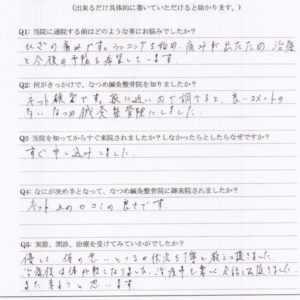 (出来るだけ具体的に書いていただけると助かります。)
Q1: 当院に通院する前はどのような事にお悩みでしたか?
ひざの痛みです。ランニングを始め、痛みが出たため、治療
と今後の予防を希望しています。
Q2: 何がきっかけで、なつめ鍼灸整骨院を知りましたか?
ネット検索です。家に近い内で調べると、良いコメントの
多い なつめ鍼灸整骨院にしました。
Q3 当院を知ってからすぐ来院されましたか?しなかったらとしたらなぜですか?
すぐ申し込みしました。
Q4: なにが決め手となって、なつめ鍼灸整骨院に御来院されましたか?
ネット上の口コミの良さです。
Q5: 実際、問診、治療を受けてみていかがでしたか?
優しく、体の悪いところの状況を丁寧に教えて頂きました。
治療後は体が軽くなりました。治療中も楽しく会話して頂きました。
また来ようと思います